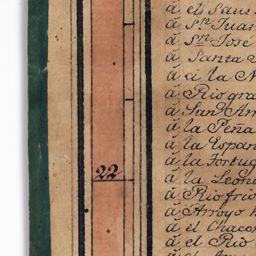 á el Saus
á Sn Juan
á Sn José
á Santa
á a la
á Rio gra
á San
á la Peña
á la Espan
á la Tortug
22
á la Leon
á Rio frio
á Arroyo
á el Chacon
á el Rio
á